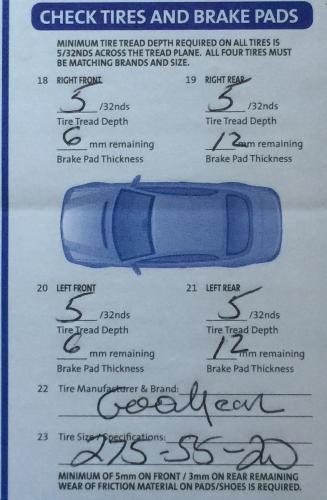 CHECK TIRES AND BRAKE PADS
MINIMUM TIRE TREAD DEPTH REQUIRED ON ALL TIRES IS
5/32NDS ACROSS THE TREAD PLANE. ALL FOUR TIRES MUST
BE MATCHING BRANDS AND SIZE.
18 RIGHT FRONT 19 RIGHT REAR
5 /32nds 5 /32nds
Tire Tread Depth Tire Tread Depth
6 mm remaining 12 mm remaining
Brake Pad Thickness Brake Pad Thickness
20 LEFT FRONT 21 LEFT REAR
5 /32nds 5 /32nds
Tire Tread Depth Tire Tread Depth
6 mm remaining 12 mm remaining
Brake Pad Thickness Brake Pad Thickness
22 Tire Manufacturer & Brand:
Goodyear
23 Tire Size / Specifications:
275-55-20
MINIMUM OF 5mm ON FRONT / 3mm ON REAR REMAINING
WEAR OF FRICTION MATERIAL ON PADS/SHOES IS REQUIRED.